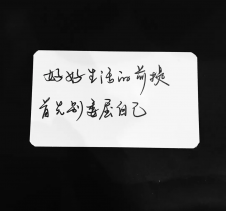 好好生活的前提
首先别委屈自己